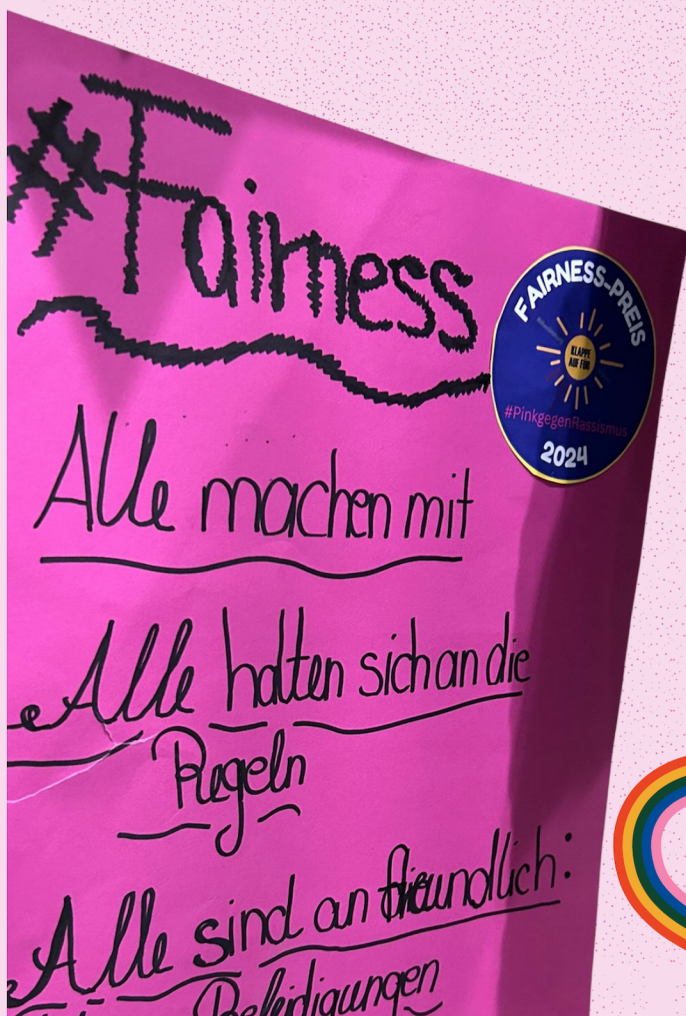 #Fairness
FAIRNESS-PREIS
KLAPPE
AUF FÜR
#PinkgegenRassismus
2024
Alle machen mit
Alle halten sich an die
Regeln
Alle sind an freundlich:
Beleidigungen